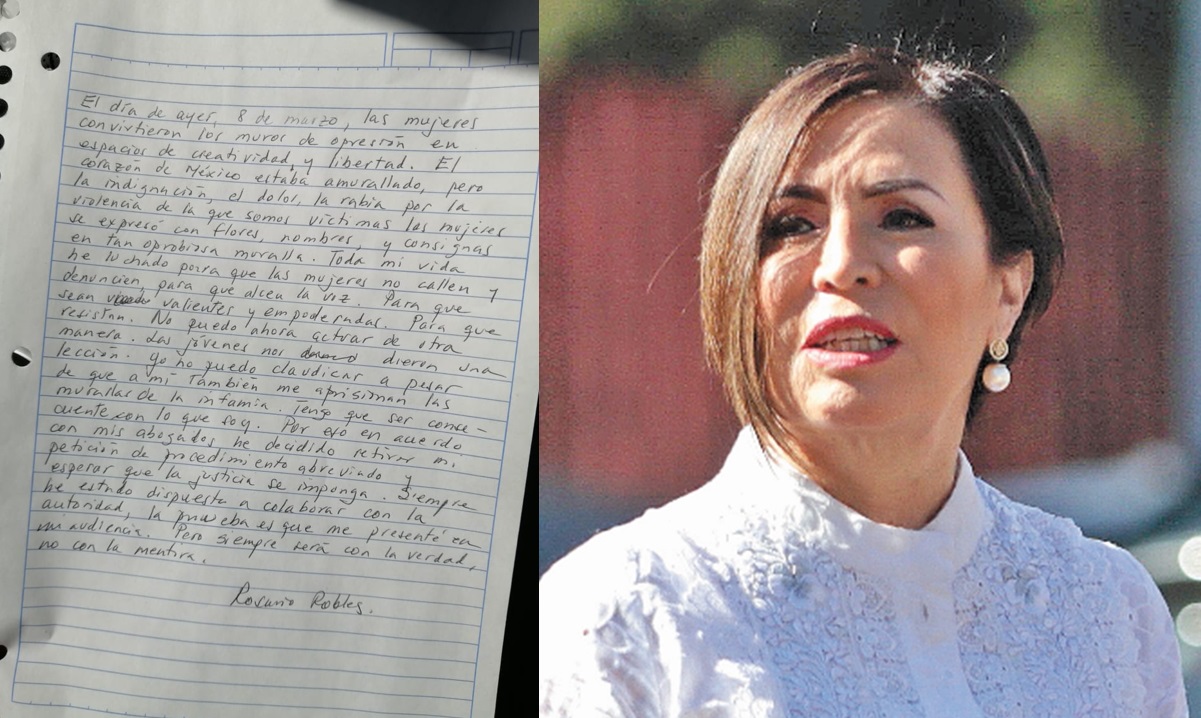 El día de ayer, 8 de marzo, las mujeres
convirtieron los muros de opresión en
espacios de creatividad y libertad. El
corazón de México estaba amurallado, pero
la indignación, el dolor, la rabia por la
violencia de la que somos víctimas las mujeres
se expresó con flores, nombres, y consignas
en tan oprobiosa muralla. Toda mi vida
he luchado para que las mujeres no callen y
denuncien, para que alcen la voz. Para que
sean valientes y empoderadas. Para que
resistan. No puedo ahora actuar de otra
manera. Las jóvenes nos dieron una
lección. Yo no puedo claudicar a pesar
de que a mí también me aprisionan las
murallas de la infamia. Tengo que ser conse-
cuente con lo que soy. Por eso en acuerdo
con mis abogados he decidido retirar mi
petición de procedimiento abreviado y
esperar que la justicia se imponga. Siempre
he estado dispuesta a colaborar con la
autoridad, la prueba es que me presenté en
mi audiencia. Pero siempre será con la verdad,
no con la mentira.
Rosario Robles.